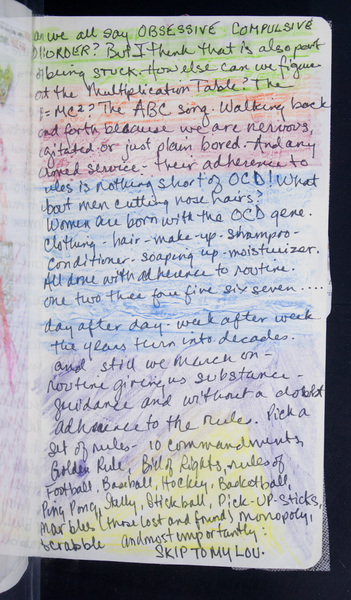 as we all say OBSESSIVE COMPULSIVE
DISORDER? But I think that is also part
of being stuck. How else can we figure
out the Multiplication Table? The
E=MC²? The ABC song. Walking back
and forth because we are nervous,
agitated or just plain bored. And any
armed service - their adherence to
rules is nothing short of OCD! What
bout men cutting nose hairs?
Women are born with the OCD gene.
Clothing - hair - make-up - shampoo -
conditioner - soaping up - moisturizer.
All done with adherence to routine.
one two three four five six seven ....
day after day - week after week
the years turn into decades.
and still we march on -
routine giving us substance -
guidance and without a doubt
adherence to the rules. Pick a
set of rules - 10 commandments,
Golden Rule, Bill of Rights, rules of
Football, Baseball, Hockey, Basketball,
Ping Pong, Stickball, Pick-UP-Sticks,
Marbles (those lost and found) monopoly,
Scrabble and most importantly:
SKIP TO MY LOU.